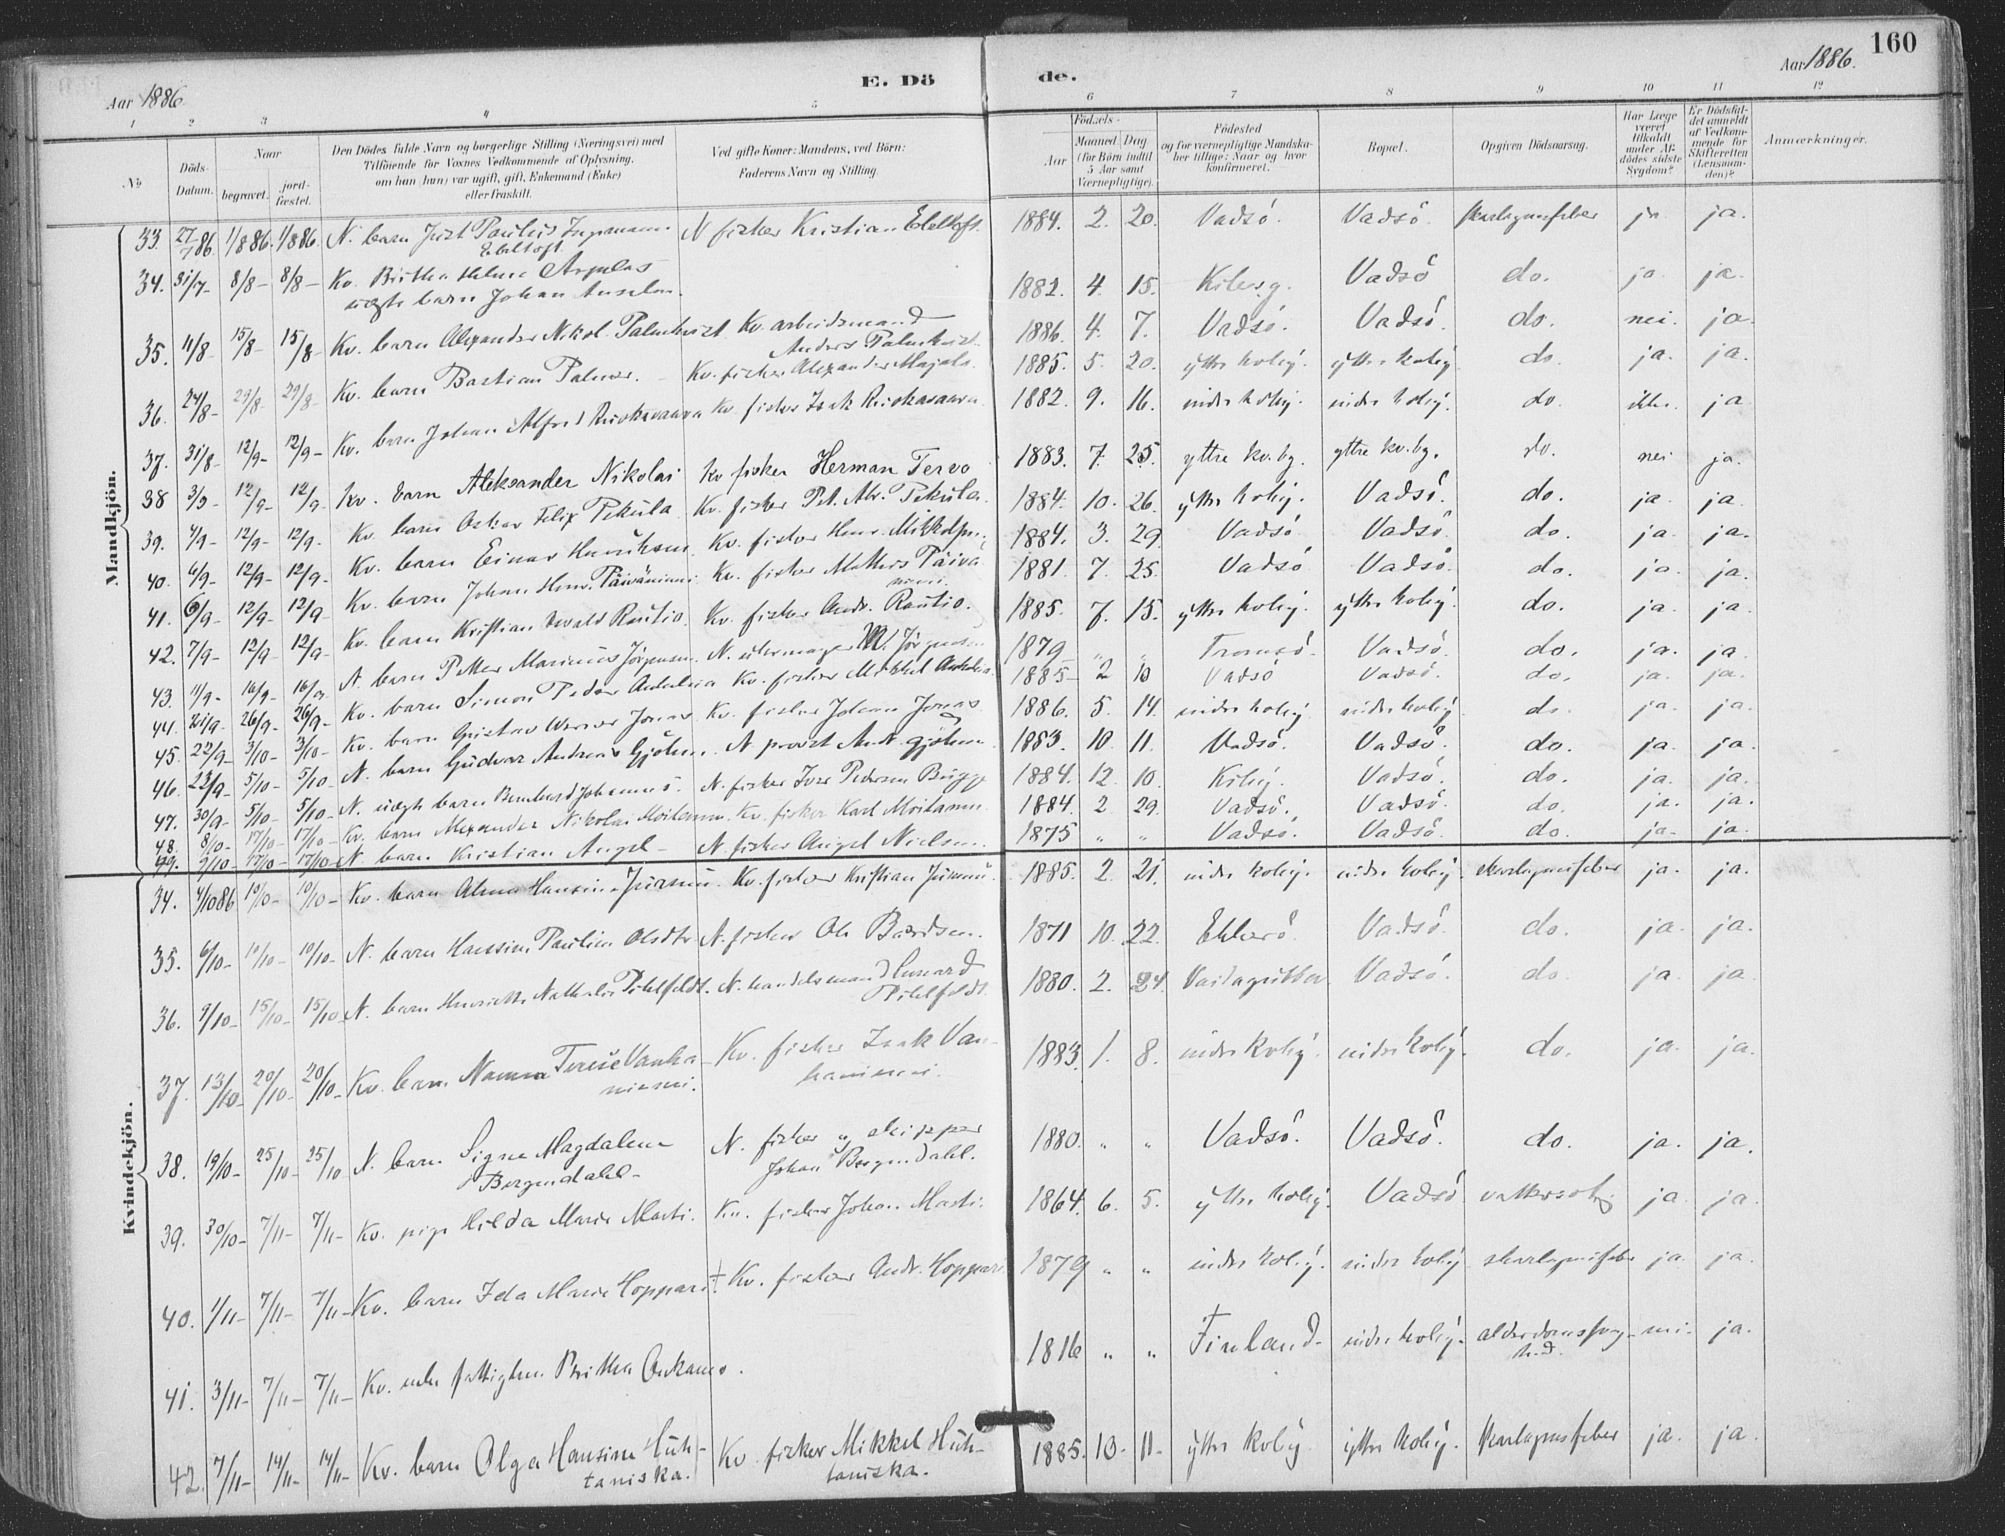 160
Aar 1886.
E. Dö
de.
Aar 1886.
1 2 3 4 5 6 7 8 9 10 11 12
No
Döds-Datum.
Naar
begravet.
jord-fæstet.
Den Dödes fulde Navn og borgerlige Stilling (Næringsvei) med
Tilföiende for Voxnes Vedkommende af Oplysning,
om han (hun) var ugift, gift, Enkemand (Enke)
eller fraskilt.
Ved gifte Koner: Mandens, ved Börn:
Faderens Navn og Stilling.
Födsels-
Aar
Maaned
Dag
(for Börn indtil
5 Aar samt
Værnepligtige).
Födested
og for værnepligtige Mandska-
ber tillige: Naar og hvor
konfirmeret.
Bopæl.
Opgiven Dödsaarsag.
Har Læge
været
tilkaldt
under Af-
dödes sidste
Sygdom?
Er Dödsfal-
det anmeldt
af Vedkom-
mende for
Skifteretten
(Lensman-
den)?
Anmærkninger.
Mandkjön.
33. 27/7 86. 1/8 86. 1/8 86. N. barn Paulus Ebeltoft. N fisker Kristian Ebeltoft. 1884. 2. 20. Vadsö. Vadsö. skarlagensfeber ja. ja.
34. 31/7- 8/8- 8/8- Kv. uægte barn Johan 1882. 4. 15. Kiberg. Vadsö do. ja. ja.
35. 4/8- 15/8- 15/8- Kv. barn Alexander Nikol. Palmkvist Kv. arbeidsmand Anders Palmkvist. 1886. 4. 7. Vadsö. Vadsö. do. nei. ja.
36. 24/8- 29/8- 29/8- Kv. barn Bastian Kv. fisker Alexander Majala. 1885. 5. 20. yttre kvby. yttre kvby do. ja. ja.
37. 31/8- 12/9- 12/9- Kv. barn Johan Alfred Kv. fisker Isak 1882. 9. 16. indre kvby. indre kvby. do. ikke. ja
38 3/9- 12/9- 12/9- Kv. barn Aleksander Nikolai Kv fisker Herman Tervo 1883. 7. 25. yttre kv.by. yttre kv.by. do. nei ja.
39. 4/9- 12/9- 12/9- Kv. barn Oskar Felix Pekula Kv. fisker Pet. Pekula. 1884. 10. 26. yttre kvby. Vadsö. do. ja. ja.
40. 4/9- 12/9- 12/9- Kv. barn Einar Henriksen Kv. fisker Henr. 1884. 3. 29 Vadsö Vadsö. do. ja. ja.
41. 6/9- 12/9- 12/9- Kv. barn Johan Henr. Päiväniemi Kv. fisker Mathis Päivä niemi. 1881. 7. 25. Vadsö Vadsö. do. ja. ja.
42. 7/9- 12/9- 12/9- Kv. barn Kristian Rautio. Kv. fisker Andr. Rautio. 1885. 7. 15. yttre kvby. yttre kvby. do. ja. ja.
43. 11/9- 16/9- 16/9 N. barn Petter Marinius Jörgensen. N. uhrmager Jörgensen 1879 „ „ Tromsö. Vadsö. do. ja. ja.
44. 21/9. 26/9- 26/9- Kv. barn Simon Peder Kv. fisker Mikkel 1885- 2 10 Vadsö Vadsö. do. ja. ja.
45. 22/9- 3/10- 3/10- Kv. barn Gustav Werner Jonas Kv. fisker Johan Jonas. 1886. 5. 14. indre kvby indre kvby do. ja. ja
46. 23/9- 5/10- 5/10- N. barn Gudvar Andreas Gjölme. N. provst And. Gjölme. 1883. 10. 11. Vadsö. Vadsö. do. ja. ja.
47. 30/9- 5/10- 5/10- N. uægte barn Bernhard Johannes. N. fisker Iver Pedersen Bugge 1884. 12. 10. Kiby. Vadsö. do. ja. ja.
48. 8/10- 17/10- 17/10- Kv. barn Alexander Nikolai Moilanen. Kv. fisker Karl Moilanen. 1884. 2 29. Vadsö. Vadsö. do. ja. ja.
49. 9/10- 17/10- 17/10- N. barn Kristian Angel - N. fisker Angel Nielsen. 1875 „ „ Vadsö. Vadsö. do. ja. ja.
Kvindekjön.
34. 4/10 86 10/10- 10/10- Kv. barn Alma Hansine Kv. fisker Kristian 1885. 2. 21. indre kvby. indre kvby. skarlagensfeber ja. ja.
35. 6/10- 10/10- 10/10- N. barn Hansine Pauline Olsdtr. N. fisker Ole Bårdsen. 1871 10. 22. Ekkerö Vadsö. do. ja. ja.
36. 9/10- 15/10- 15/10- N. barn Henriette Nathalie Pihlfeldt. N. handelsmand Pihlfeldt. 1880. 2. 24. Vaidagubba Vadsö. do ja. ja.
37. 13/10- 20/10- 20/10- Kv. barn Namma Terese Vanha- niemi. Kv. fisker Isak Van- haniemi. 1883. 1. 8. indre kvby. indre kvby. do. ja. ja.
38. 19/10- 25/10- 25/10 N. barn Signe Magdalena Bergendahl- N. fisker og skipper Johan Bergendahl. 1880. „ „ Vadsö. Vadsö. do. ja. ja.
39. 30/10- 7/11- 7/11- Kv. pige Hilda Marie Marti. Kv. fisker Johan Marti. 1864. 6. 5. yttre kvby. Vadsö vattersot ja. ja.
40. 1/11- 7/11- 7/11- Kv. barn Ida Marie Hoppari. † Kv. fisker Andr. Hoppari. 1879 „ „ indre kvby. indre kvby skarlagensfeber ja. ja.
41. 3/11- 7/11- 7/11- Kv. enke fattiglem. Britha Onkamo. 1816 „ „ Finland- indre kvby. alderdomssvag- hed. nei. ja.
42. 7/11- 14/11- 14/11- Kv. barn Olga Hansine Huh- taniska. Kv. fisker Mikkel Huh- taniska. 1885. 10- 11- yttre kvby yttre kvby. skarlagensfeber ja. ja.